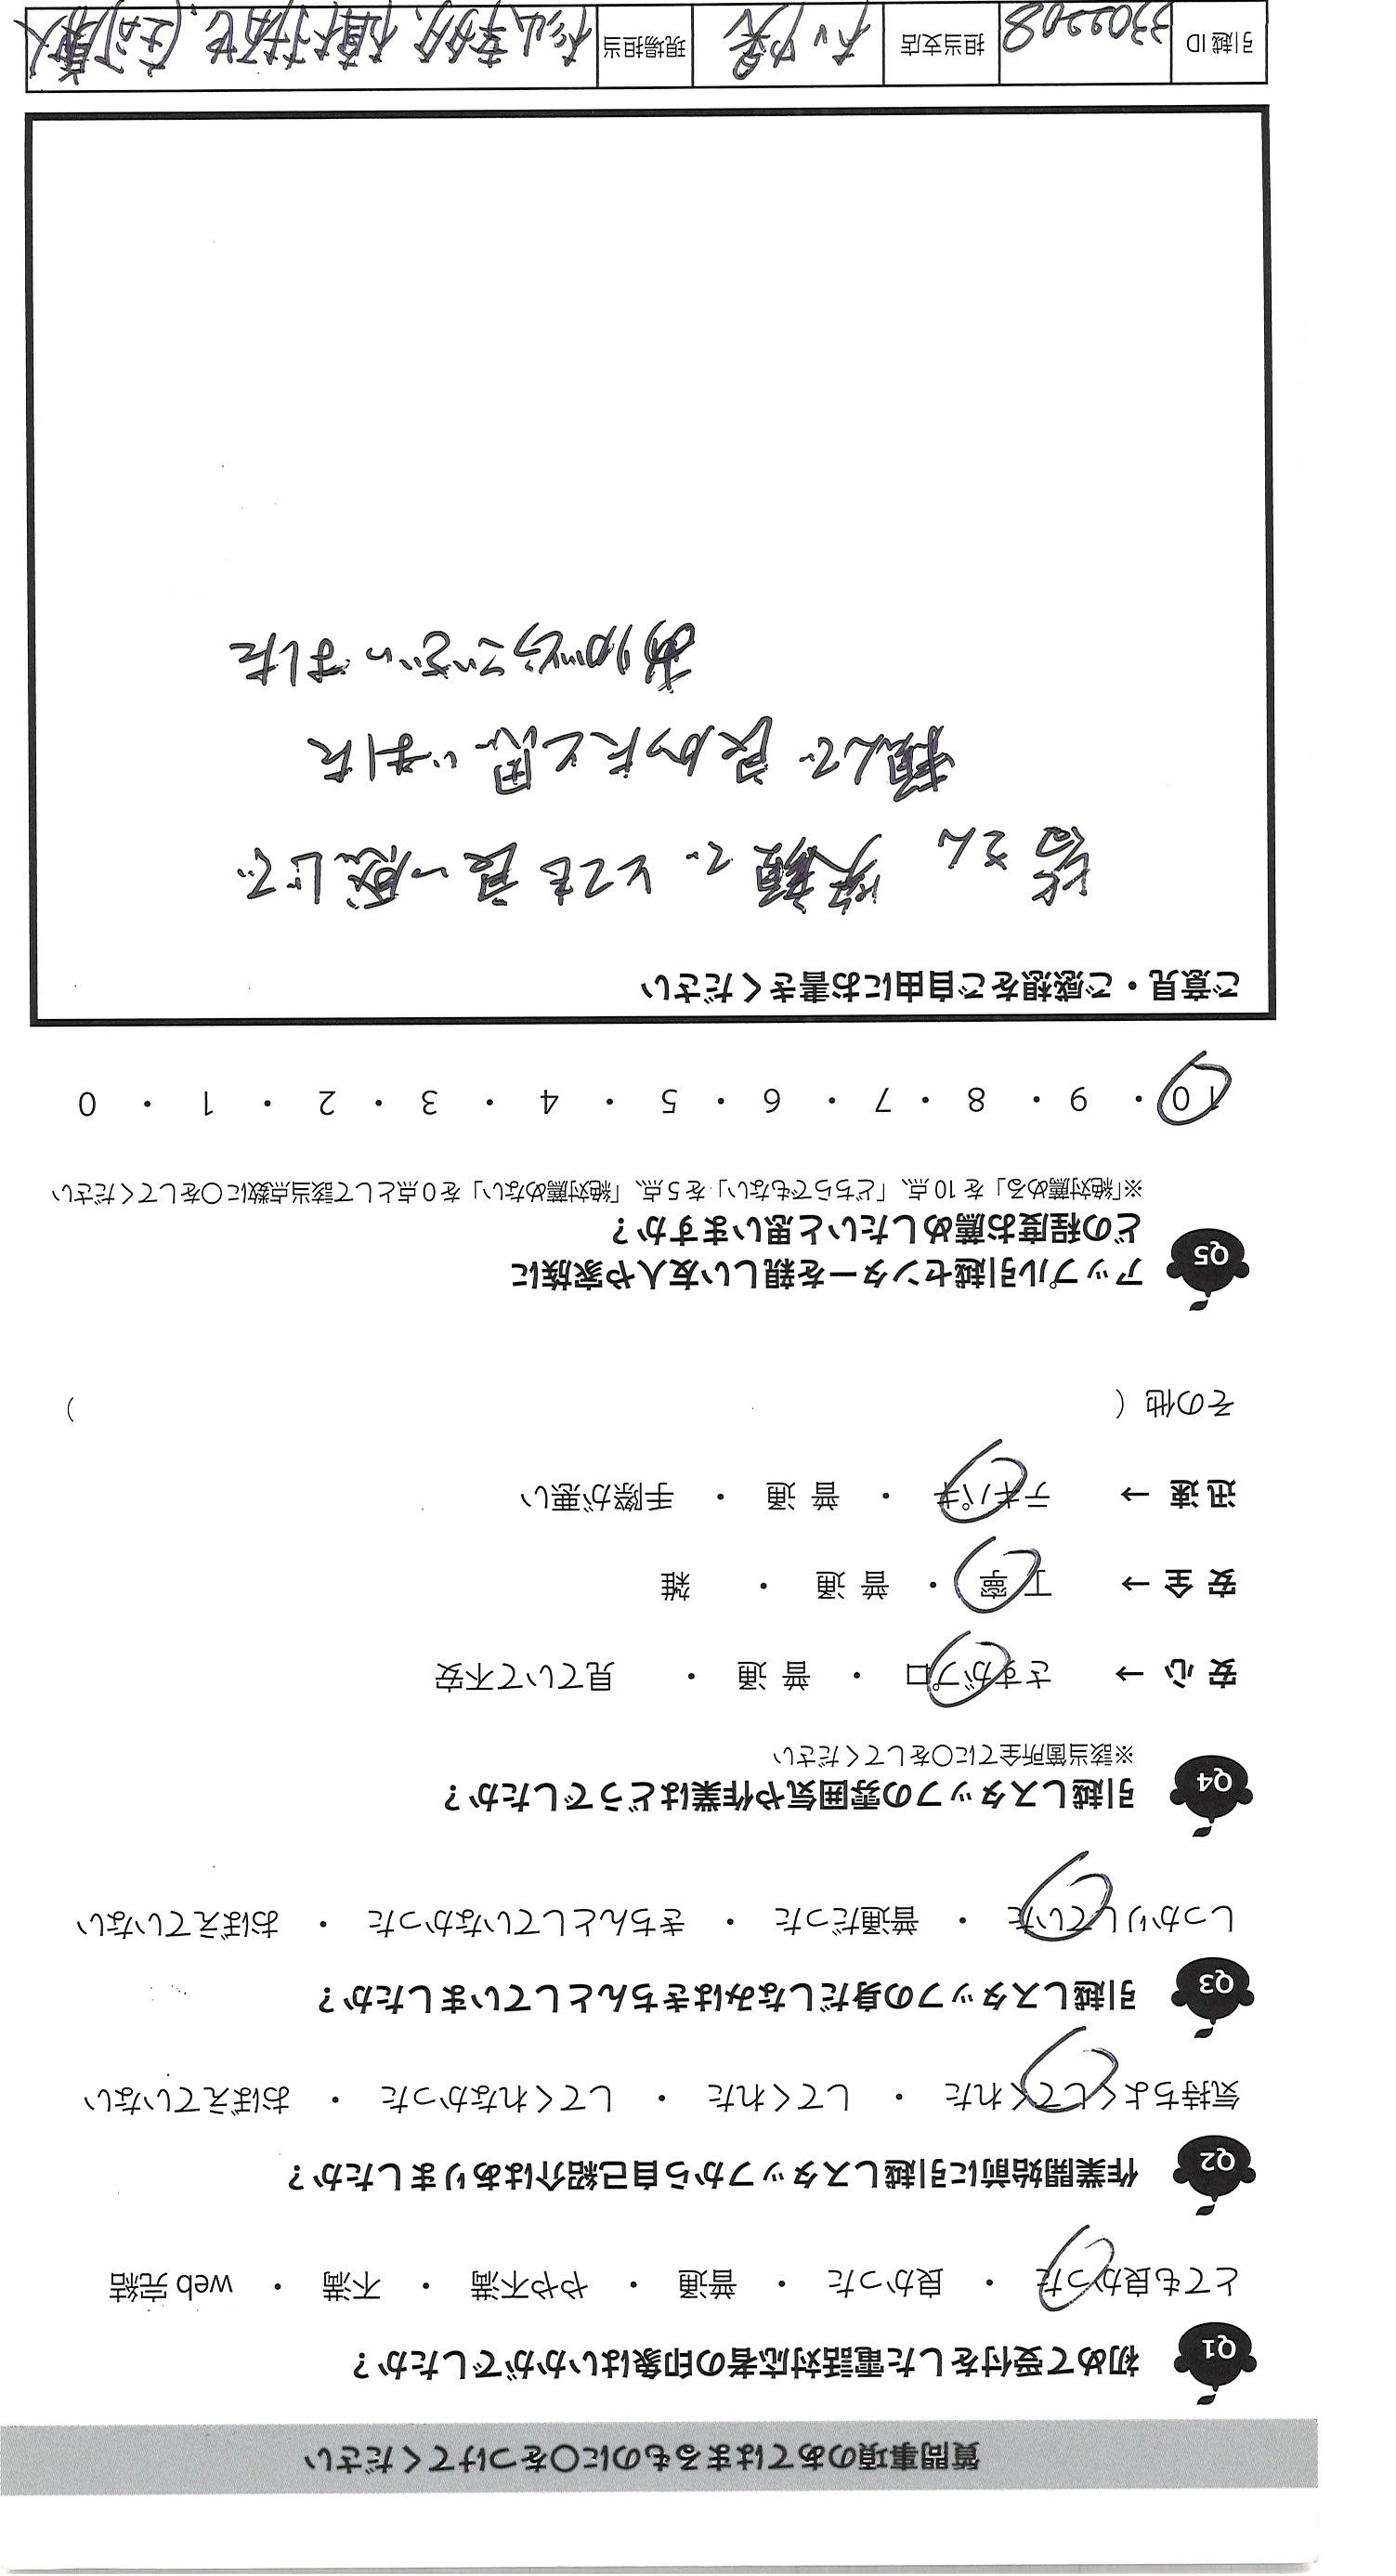 質問事項のあてはまるものに〇をつけてください
Q1 初めて受付をした電話対応者の印象はいかがでしたか？
とても良かった ・ 良かった ・ 普通 ・ やや不満 ・ 不満 ・ web 完結
Q2 作業開始前に引越しスタッフから自己紹介はありましたか？
気持ちよくしてくれた ・ してくれた ・ してくれなかった ・ おぼえていない
Q3 引越しスタッフの身だしなみはきちんとしていましたか？
しっかりしていた ・ 普通だった ・ きちんとしていなかった ・ おぼえていない
Q4 引越しスタッフの雰囲気や作業はどうでしたか？
※該当箇所全てに〇をしてください
安 心 → さすがプロ ・ 普 通 ・ 見ていて不安
安 全 → 丁 寧 ・ 普 通 ・ 雑
迅 速 → テキパキ ・ 普 通 ・ 手際が悪い
その他（ ）
Q5 アップル引越センターを親しい友人や家族に
どの程度お薦めしたいと思いますか？
※「絶対薦める」を 10 点、「どちらでもない」を 5 点、「絶対薦めない」を 0 点として該当点数に〇をしてください
10 ・ 9 ・ 8 ・ 7 ・ 6 ・ 5 ・ 4 ・ 3 ・ 2 ・ 1 ・ 0
ご意見・ご感想をご自由にお書きください
皆さん 笑顔で とても良い感じで
頼んで 良かったと思いました
ありがとうございました
引越 ID 3302208 担当支店 現場担当